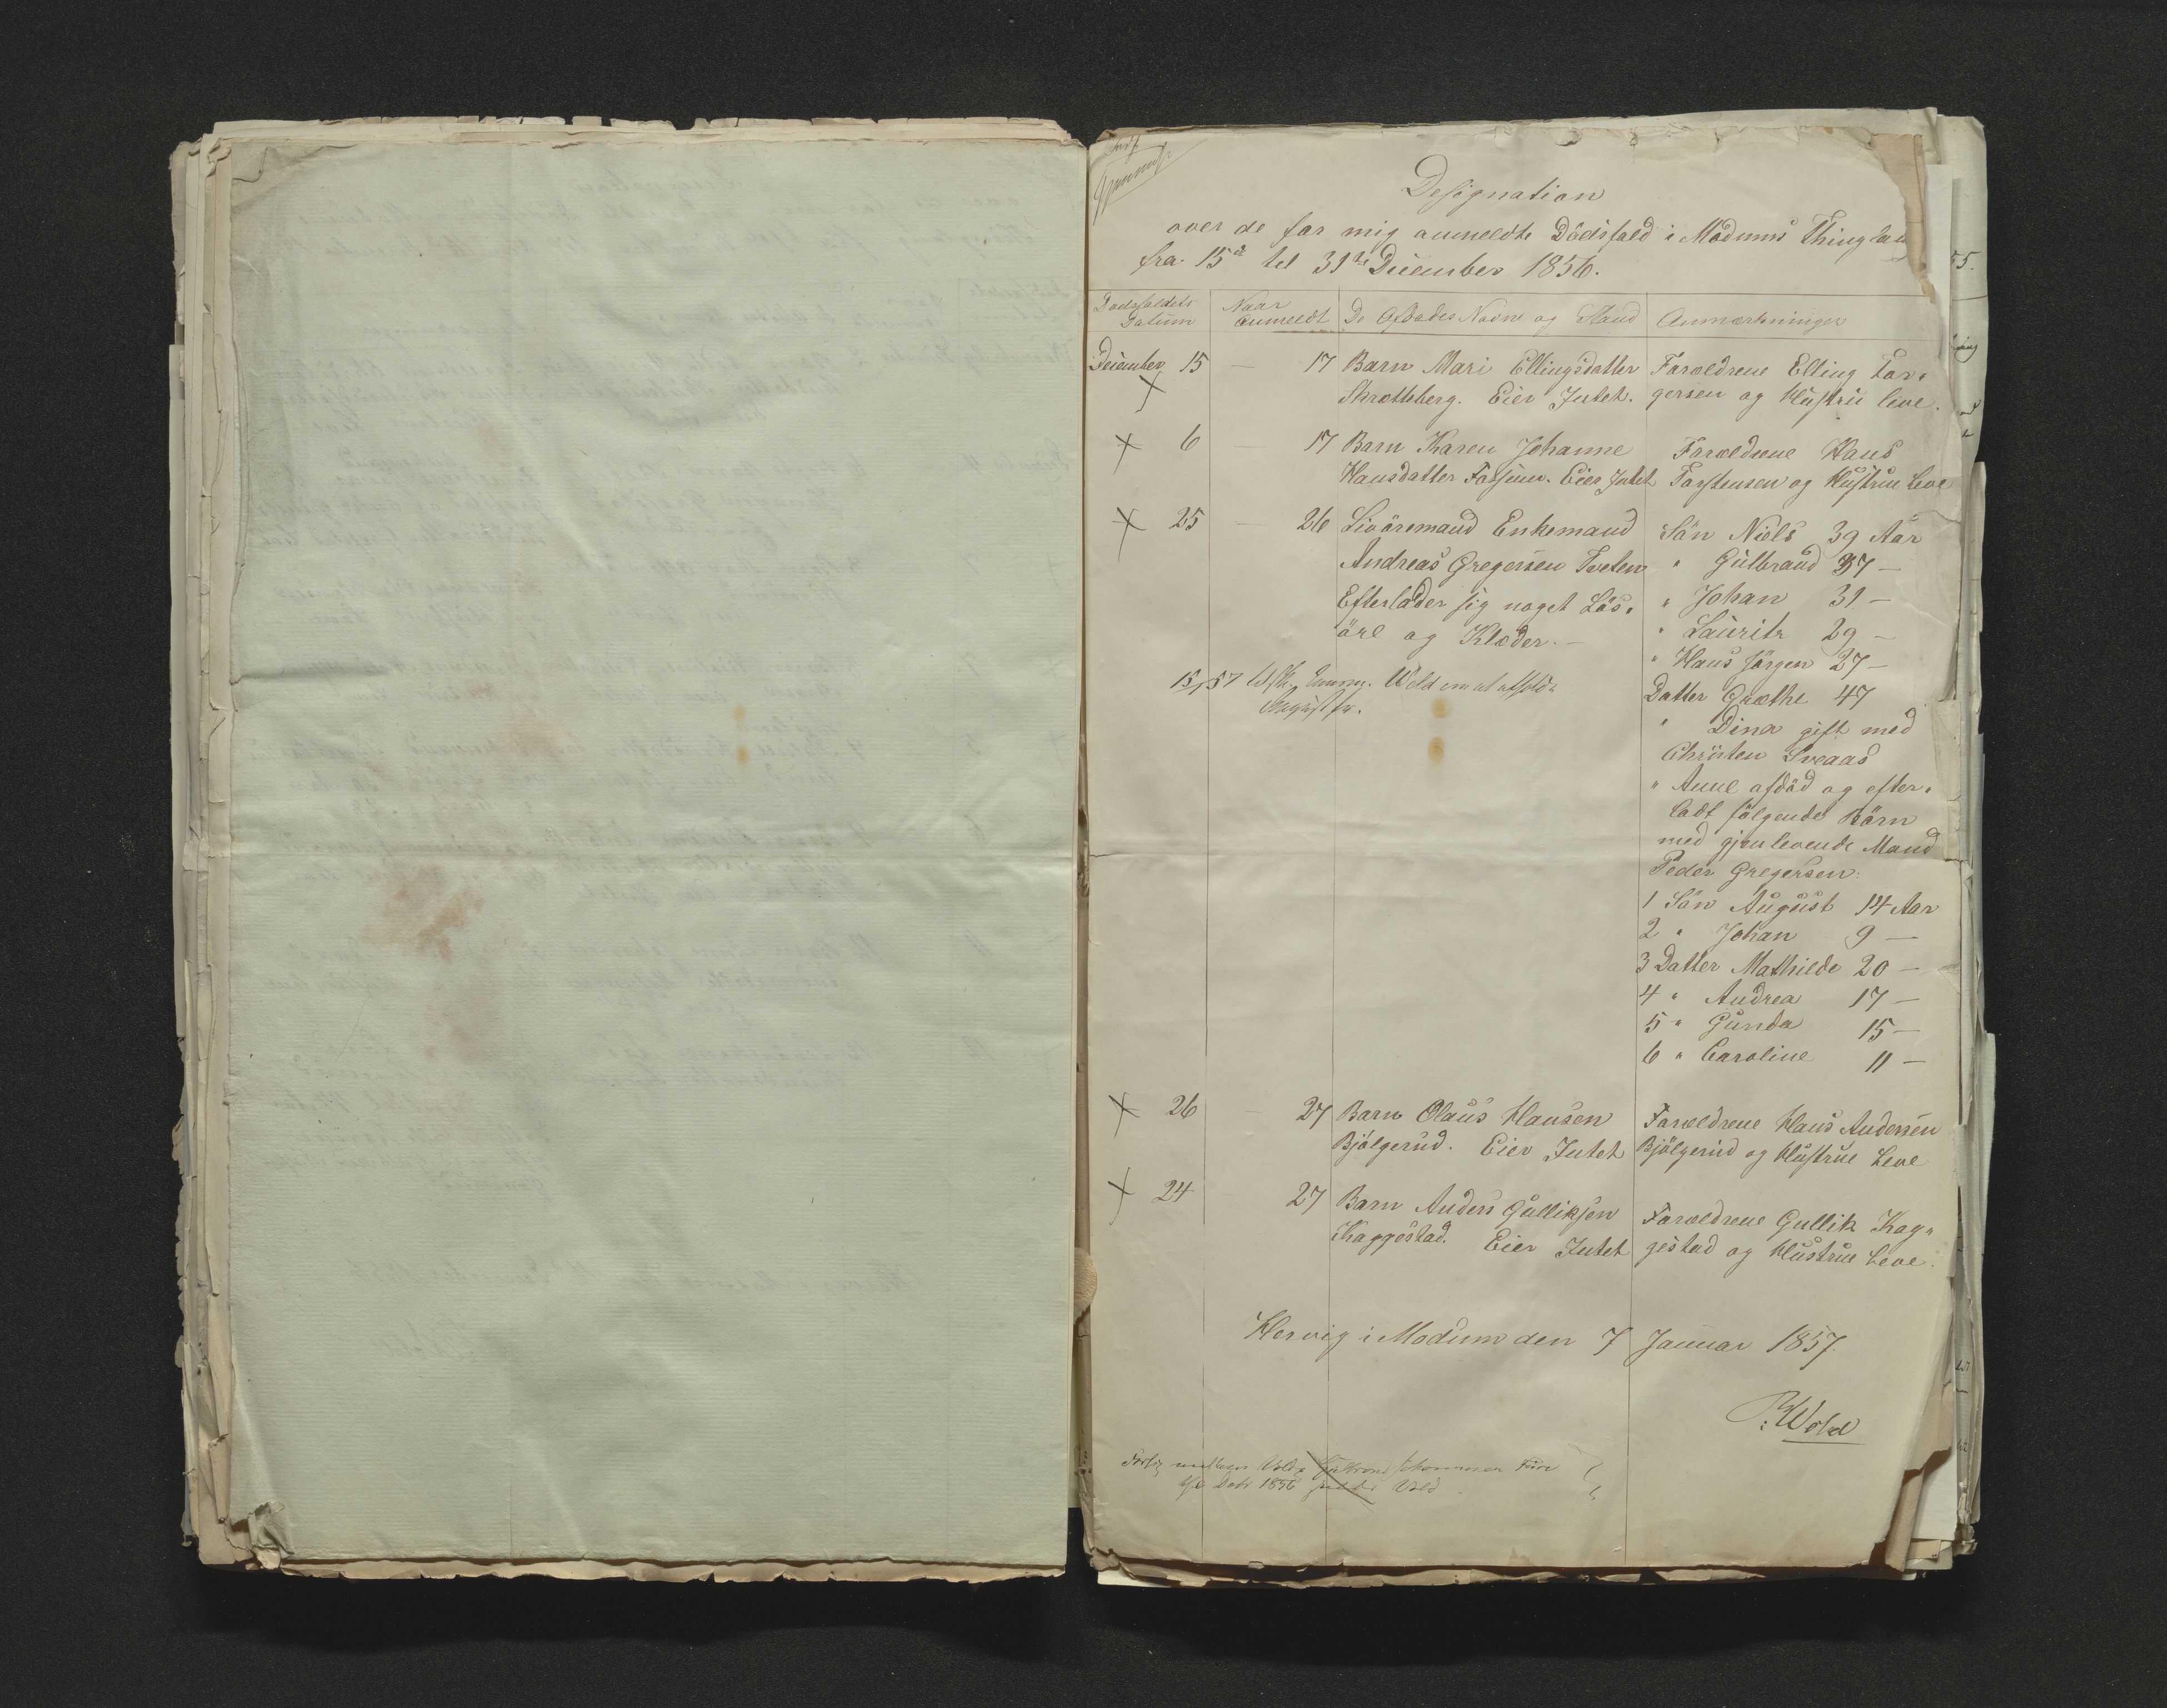 Designation
over de for mig anmeldte Dödsfald i Modums Thinglaug
fra 15de til 31te December 1856.
Dødsfaldets Datum
Naar Anmeldt
De Afdødes Navne og Stand
Anmærkninger
December 15 — 17 Barn Mari Ellingsdatter
Skrætteberg. Eier Intet.
Forældrene Elling Tor-
gersen og Hustru leve.
6 — 17 Barn Karen Johanne
Hansdatter Eier Intet
Forældrene Hans
Torstensen og Hustrue Leve
25 — 26 Livöremand Enkemand
Andreas Gregersen Tveten
Efterlader sig noget Lös-
öre og Klæder. —
Sön Niels 39 Aar
" Gulbrand 37 —
" Johan 31 —
" Lauritz 29 —
" Hans Jörgen 27 —
Datter Græthe 47
" Dina gift med
Christen Sveaas
" Anne afdöd og efter-
ladt fölgende Börn
med gjenlevende Mand
Peder Gregersen:
1 Sön August 14 Aar
2 " Johan 9 —
3 Datter Mathilde 20 —
4 " Andrea 17 —
5 " Gunda 15 —
6 " Caroline 11 —
Wold om at
26 — 27 Barn Olaus Hansen
Bjölgerud. Eier Intet
Forældrene Hans Andersen
Bjölgerud og Hustrue Leve
24 27 Barn Anders Gulliksen
Kaggestad. Eier Intet
Forældrene Gullik Kag-
gestad og Hustrue Leve.
Hervig i Modum den 7 Januar 1857.
P: Wold
1856